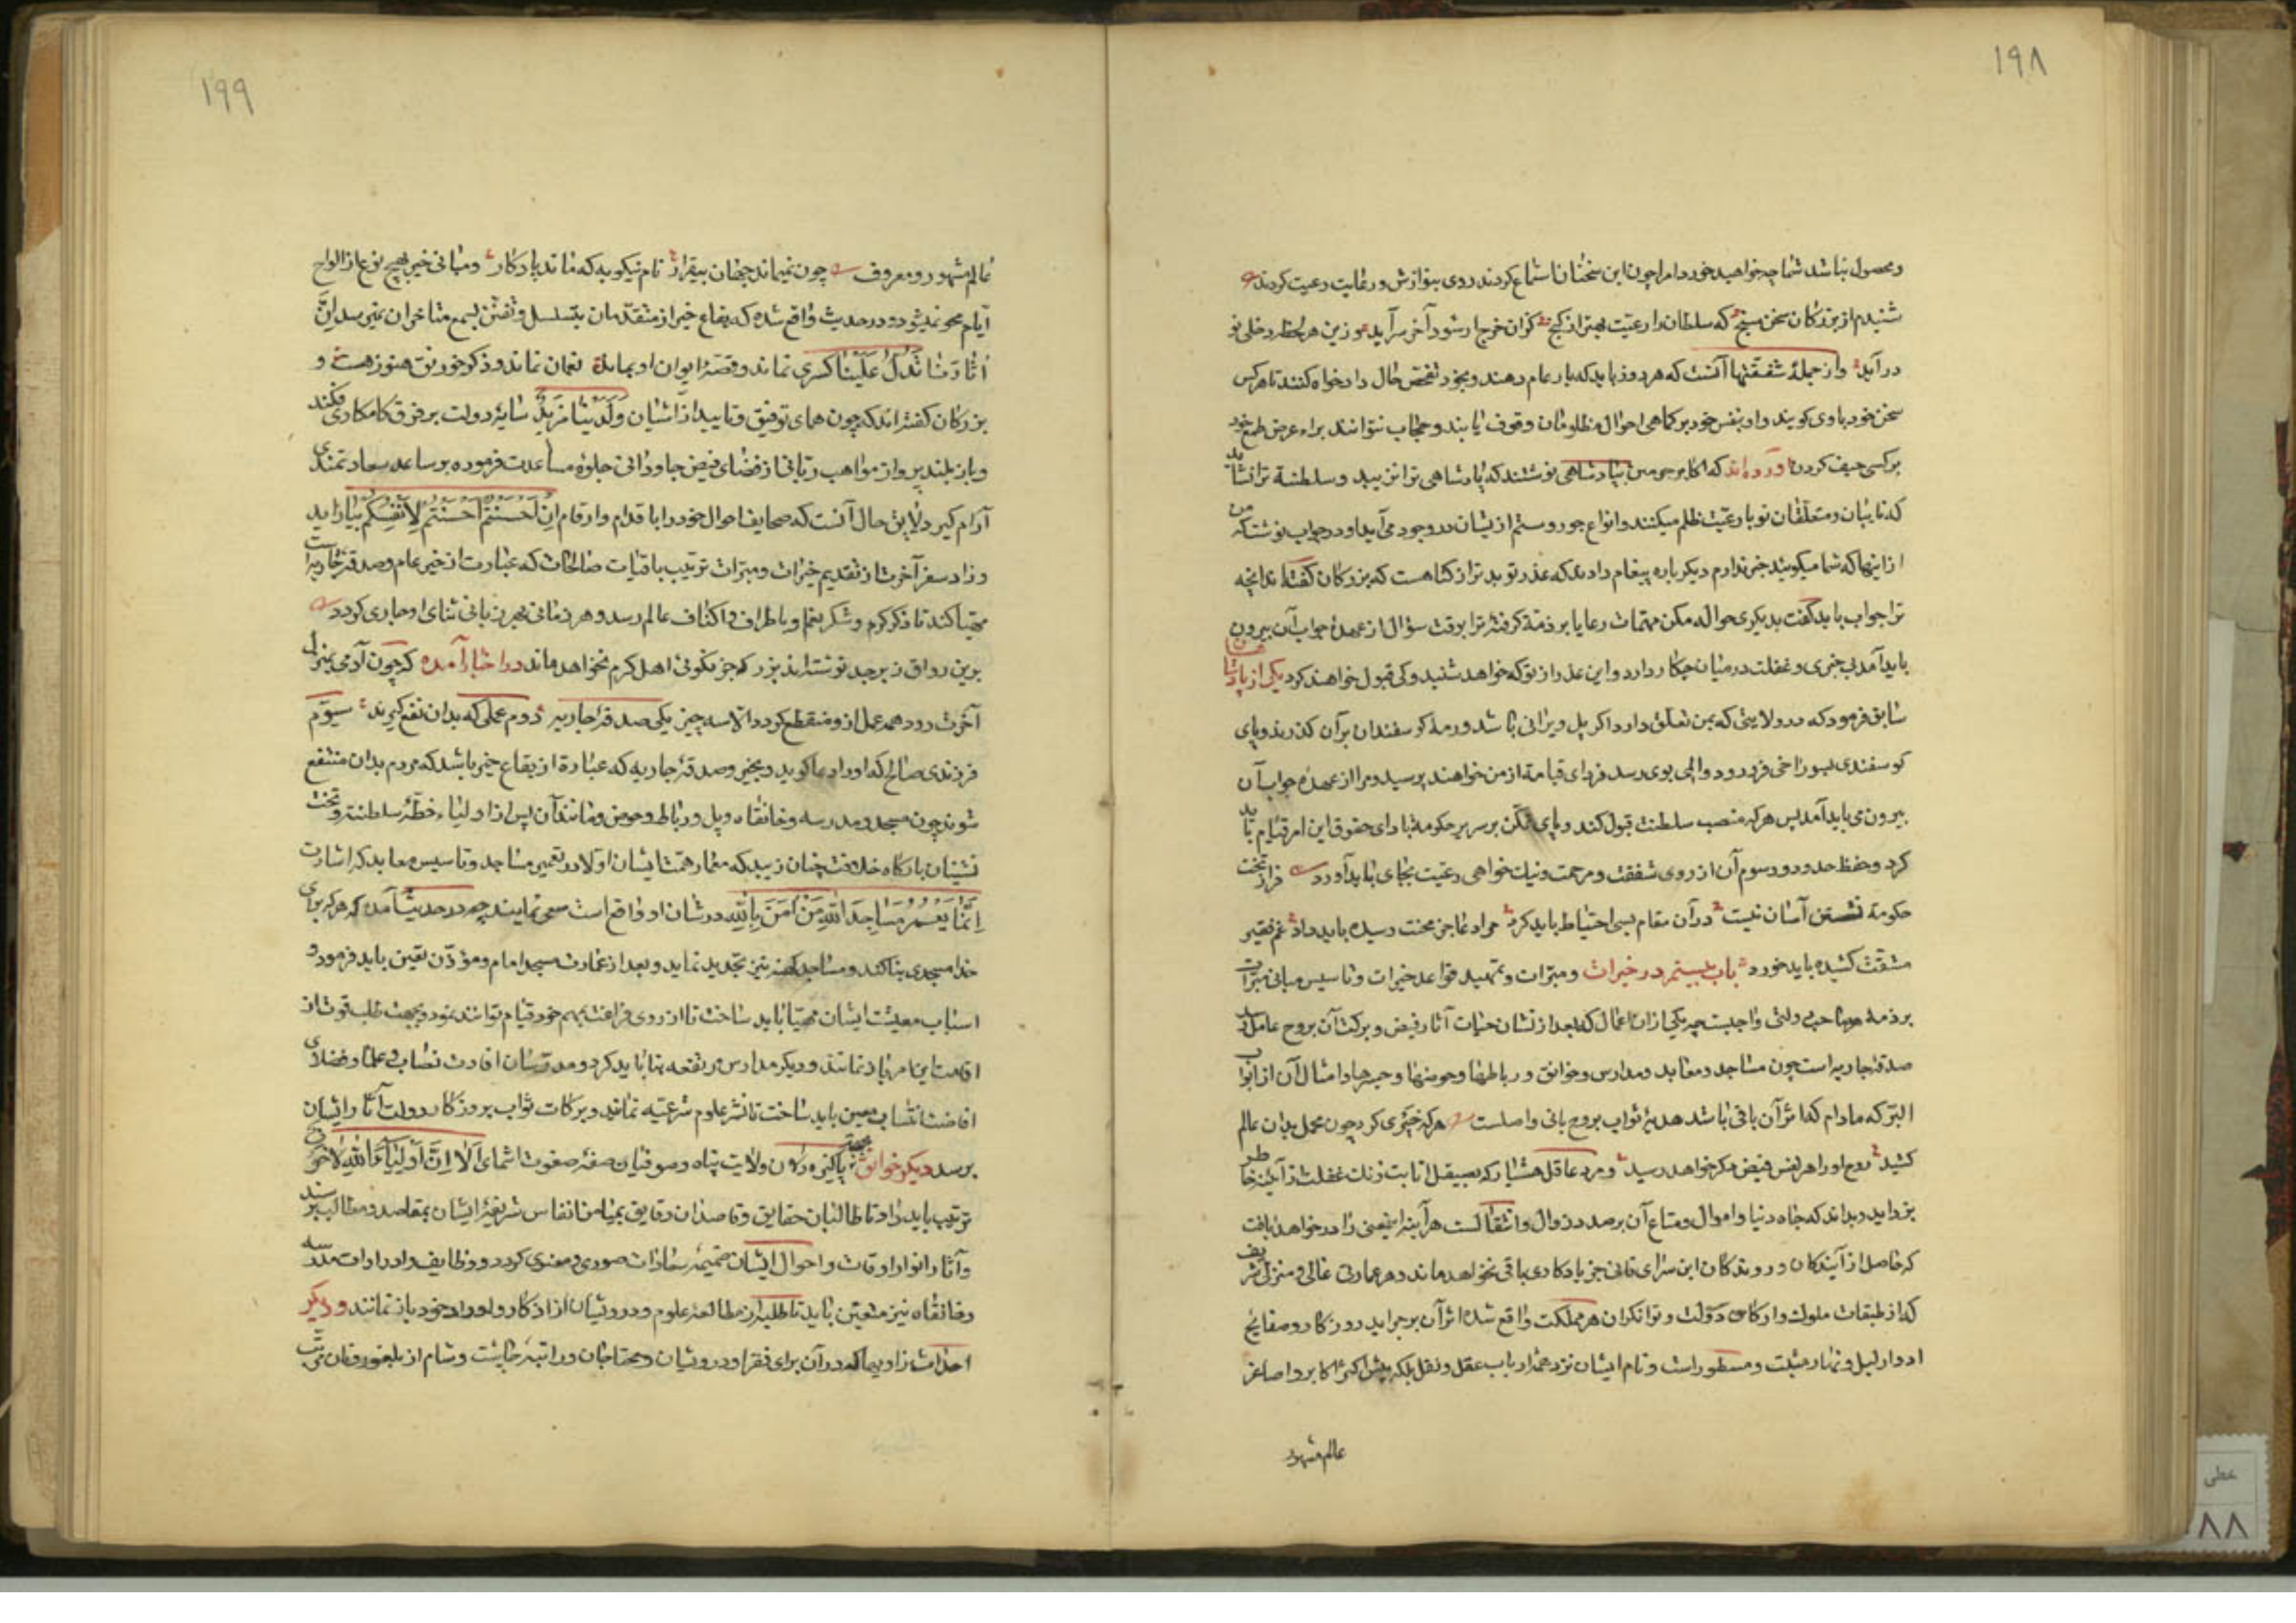 ۱۹۸
و محصول نباشد شما چه خواهید خورد امرا چون این سخنان استماع کردند روی بنوازش و رعایت رعیت کردند
شنیدم از بزرگان سخن سنج که سلطان را رعیت بهتر از گنج که آن خرج ار شود آخر سرآید وزین هر لحظه دخلی نو
درآید و از جملهٔ شفقتها آنست که هر روز باید که بار عام دهند و بخود تفحص حال دادخواه کنند تا هر کس
سخن خود باوی گویند و او بنفس خود بر کماهی احوال مظلومان وقوف یابند و حجاب نتوانند براء عرض طمع خود
بر کسی حیف کردن آورده‌اند که اکابر بپادشاهی نوشتند که پادشاهی ترا نزیبد و سلطنة ترا نشاید
که نایبان و متعلقان تو با رعیت ظلم میکنند و انواع جور و ستم ازیشان در وجود می‌آید او در جواب نوشت که من
ازاینها که شما میگویید خبر ندارم دیگر باره پیغام دادند که عذر تو بدتر از گناهست که بزرگان گفته‌اند آنچه
ترا جواب باید گفت بدیگری حواله مکن مهمات رعایا بر ذمة کرفتهٔ ترا بوقت سؤال از عهدهٔ جواب آن بیرون
باید آمد بی‌خبری و غفلت در میان چکار دارد و این عذر از تو که خواهد شنید و کی قبول خواهند کرد یکی از پادشاهان
سابق فرمود که در ولایتی که بمن تعلق دارد اگر پل ویرانی باشد و رمهٔ گوسفندان برآن گذرند و پای
گوسفندی بسوراخی فرو رود و المی بوی رسد فردای قیامة از من خواهند پرسید و مرا از عهده جواب آن
بیرون می باید آمد پس هر که منصب سلطنت قبول کند و پای تمکن بر سریر حکومة نهاد ادای حقوق این امر قیام باید
کرد و حفظ حدود و رسوم آن از روی شفقت و مرحمت و نیك خواهی رعیت بجای باید آورد فراز تخت
حکومة نشستن آسان نیست درآن مقام بسی احتیاط باید کرد مراد عاجز محنت رسیده باید داد غم فقیر
مشقت کشیده باید خورد باب بیستم در خیرات و مبرات و تمهید قواعد خیرات و تاسیس مبانی مبرات
بر ذمهٔ هر صاحب دولتی واجبست چه یکی ازان اعمال که بعد از نشان حیات آثار فیض و برکت آن بروح عامل رسد
صدقهٔ جاریه است چون مساجد و معابد و مدارس و خوانق و رباطها و حوضها و جسرها و امثال آن از ابواب
البر که مادام که اثر آن باقی باشد هدیهٔ ثواب بروح بانی واصلست هر که خیری کرد چون محمل بدان عالم
کشید روح او را هر نفس فیض دگر خواهد رسید و مرد عاقل هشیار که بصیقل انابت زنك غفلت از آئینهٔ خاطر
بزداید و بداند که جاه دنیا و اموال و متاع آن برصدد زوال و انتقالست هر آینه اینمعنی را درخواهد یافت
که حاصل از آیندگان و روندگان این سرای فانی جز یادگاری باقی نخواهد ماند و هر عمارتی عالی و منزل شریف
که از طبقات ملوك و ارکان دولت و توانگران هر مملکت واقع شده اثر آن بر جراید روزگار و صفایح
ادوار لیل و نهار مثبت و مسطور است و نام ایشان نزد همه ارباب عقل و نقل بلکه پیش اکثر اکابر و اصاغر
عالم مشهور
۱۹۹
عالم مشهور و معروف چون نمیماند جهان بیقرار نام نیکو به که ماند یادگار و مبانی خیر بهیچ نوع از الواح
ایام محو نمیشود و در حدیث واقع شده که بقاع خیر از متقدمان بتسلسل و تفنن بسمع متاخران میرسد إنّ
آثارنا تدلّ علینا کسری نماند و قصهٔ ایوان او بماند نعمان نماند و ذکر خورنق هنوز هست و
بزرگان گفته‌اند که چون همای توفیق و تایید از آشیان ولدینا مزید سایهٔ دولت بر فرق کامکاری فکند
و باز بلند پرواز مواهب ربانی از فضای فیض جاودانی جلوهٔ مساعدت فرموده بر ساعد سعادتمندی
آرام گیرد لایق حال آنست که صحایف احوال خود را باقدام و ارقام إن أحسنتم أحسنتم لأنفسکم بیاراید
و زاد سفر آخرت از تقدیم خیرات و مبرات و ترتیب باقیات صالحات که عبارت از خیر عام و صدقهٔ جاریه است
مهیا کند تا ذکر کرم و شکر نعم او باطراف و اکناف عالم رسد و هر زمانی بهر زبانی ثنای او جاری گردد
برین رواق زبرجد نوشته‌اند بزر که جز نکوئی اهل کرم نخواهد ماند در اخبار آمده که چون آدمی بمنزل
آخرت رود همه عمل ازو منقطع گردد الا سه چیز یکی صدقهٔ جاریه دوم عملی که بدان نفع گیرند سیوم
فرزندی صالح که او را دعا گوید و بخیر و صدقهٔ جاریه که عبارة از بقاع خیر باشد که مردم بدان منتفع
شوند چون مسجد و مدرسه و خانقاه و پل و رباط و حوض و مانند آن پس از اولیاء خطهٔ سلطنة و تخت
نشینان بارگاه خلافت چنان زیبد که معمار همت ایشان اولا در تعمیر مساجد و تاسیس معابد که اشارت
إنّما یعمر مساجد الله من آمن بالله در شان او واقع است سعی نمایند چه در حدیث آمده که هر که برای
خدا مسجدی بنا کند و مساجد کهنه نیز تجدید نماید و بعد از عمارت مسجد امام و مؤذن تعیین باید فرمود و
اسباب معیشت ایشان مهیا باید ساخت تا از روی فراغت بمهم خود قیام توانند نمود و بجهت طلب قوت از
اقامت این امر باز نمانند و دیگر مدارس مرتفعه بنا باید کرد و مدرسان افادت نصاب و علما و فضلای
افاضت انتساب معین باید ساخت تا نشر علوم شرعیه نمایند و برکات ثواب بروزگار دولت آثار ایشان
برسد دیگر خوانق بجهت پاکیزه درون ولایت پناه و صوفیان صفهٔ صفوت انتمای ألا إنّ أولیاء الله لا خوف
ترتیب باید داد تا طالبان حقایق و قاصدان دقایق بمیامن انفاس شریفهٔ ایشان بمقاصد و مطالب برسند
و آثار انوار اوقات و احوال ایشان ضمیمهٔ سعادات صوری و معنوی گردد و وظایف و ادرارات مدرسه
و خانقاه نیز متعین باید تا طلبه از مطالعهٔ علوم و درویشان از اذکار و اوراد خود باز نمانند و دیگر
احداث زاویها که درآن برای فقرا و درویشان و محتاجان و راتبهٔ چاشت و شام از بلغور و نان مرتب